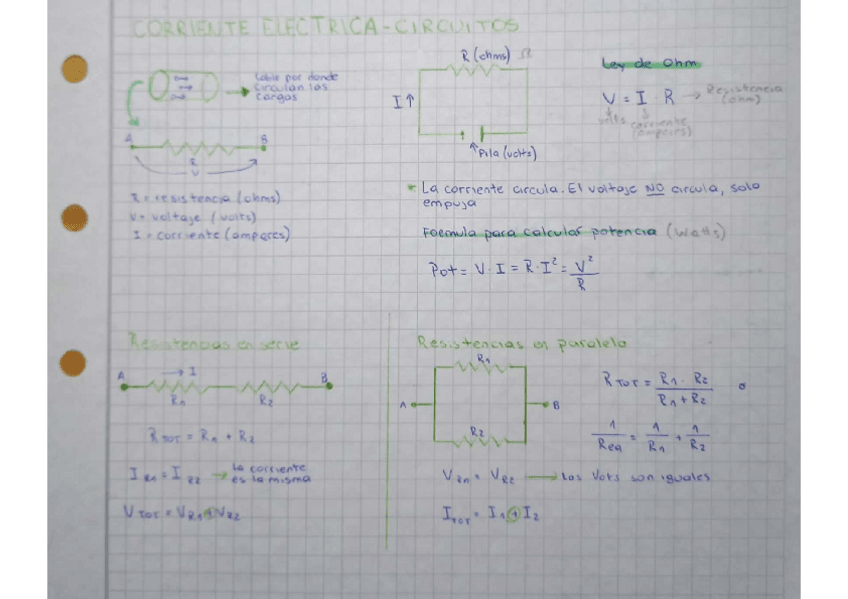 CORRIENTE ELECTRICA-CIRCUITOS
Cable por donde
circulan las
cargas
A
B
R
V
R = resistencia (ohms)
V = voltaje (volts)
I = corriente (amperes)
R (ohms) Ω
I ↑
↑ Pila (volts)
Ley de Ohm
V = I · R → Resistencia
(ohm)
volts
corriente
(amperes)
* La corriente circula. El voltaje NO circula, solo
empuja
Formula para calcular potencia (Watts)
Pot = V · I = R · I² = V²/R
Resistencias en serie
A
→ I
B
R1
R2
R TOT = R1 + R2
I R1 = I R2 → la corriente
es la misma
V TOT = V R1 + V R2
Resistencias en paralelo
R1
A
B
R2
R TOT = R1 · R2 / R1 + R2 o
1/Req = 1/R1 + 1/R2
V R1 = V R2 → Los Vots son iguales
I TOT = I1 + I2